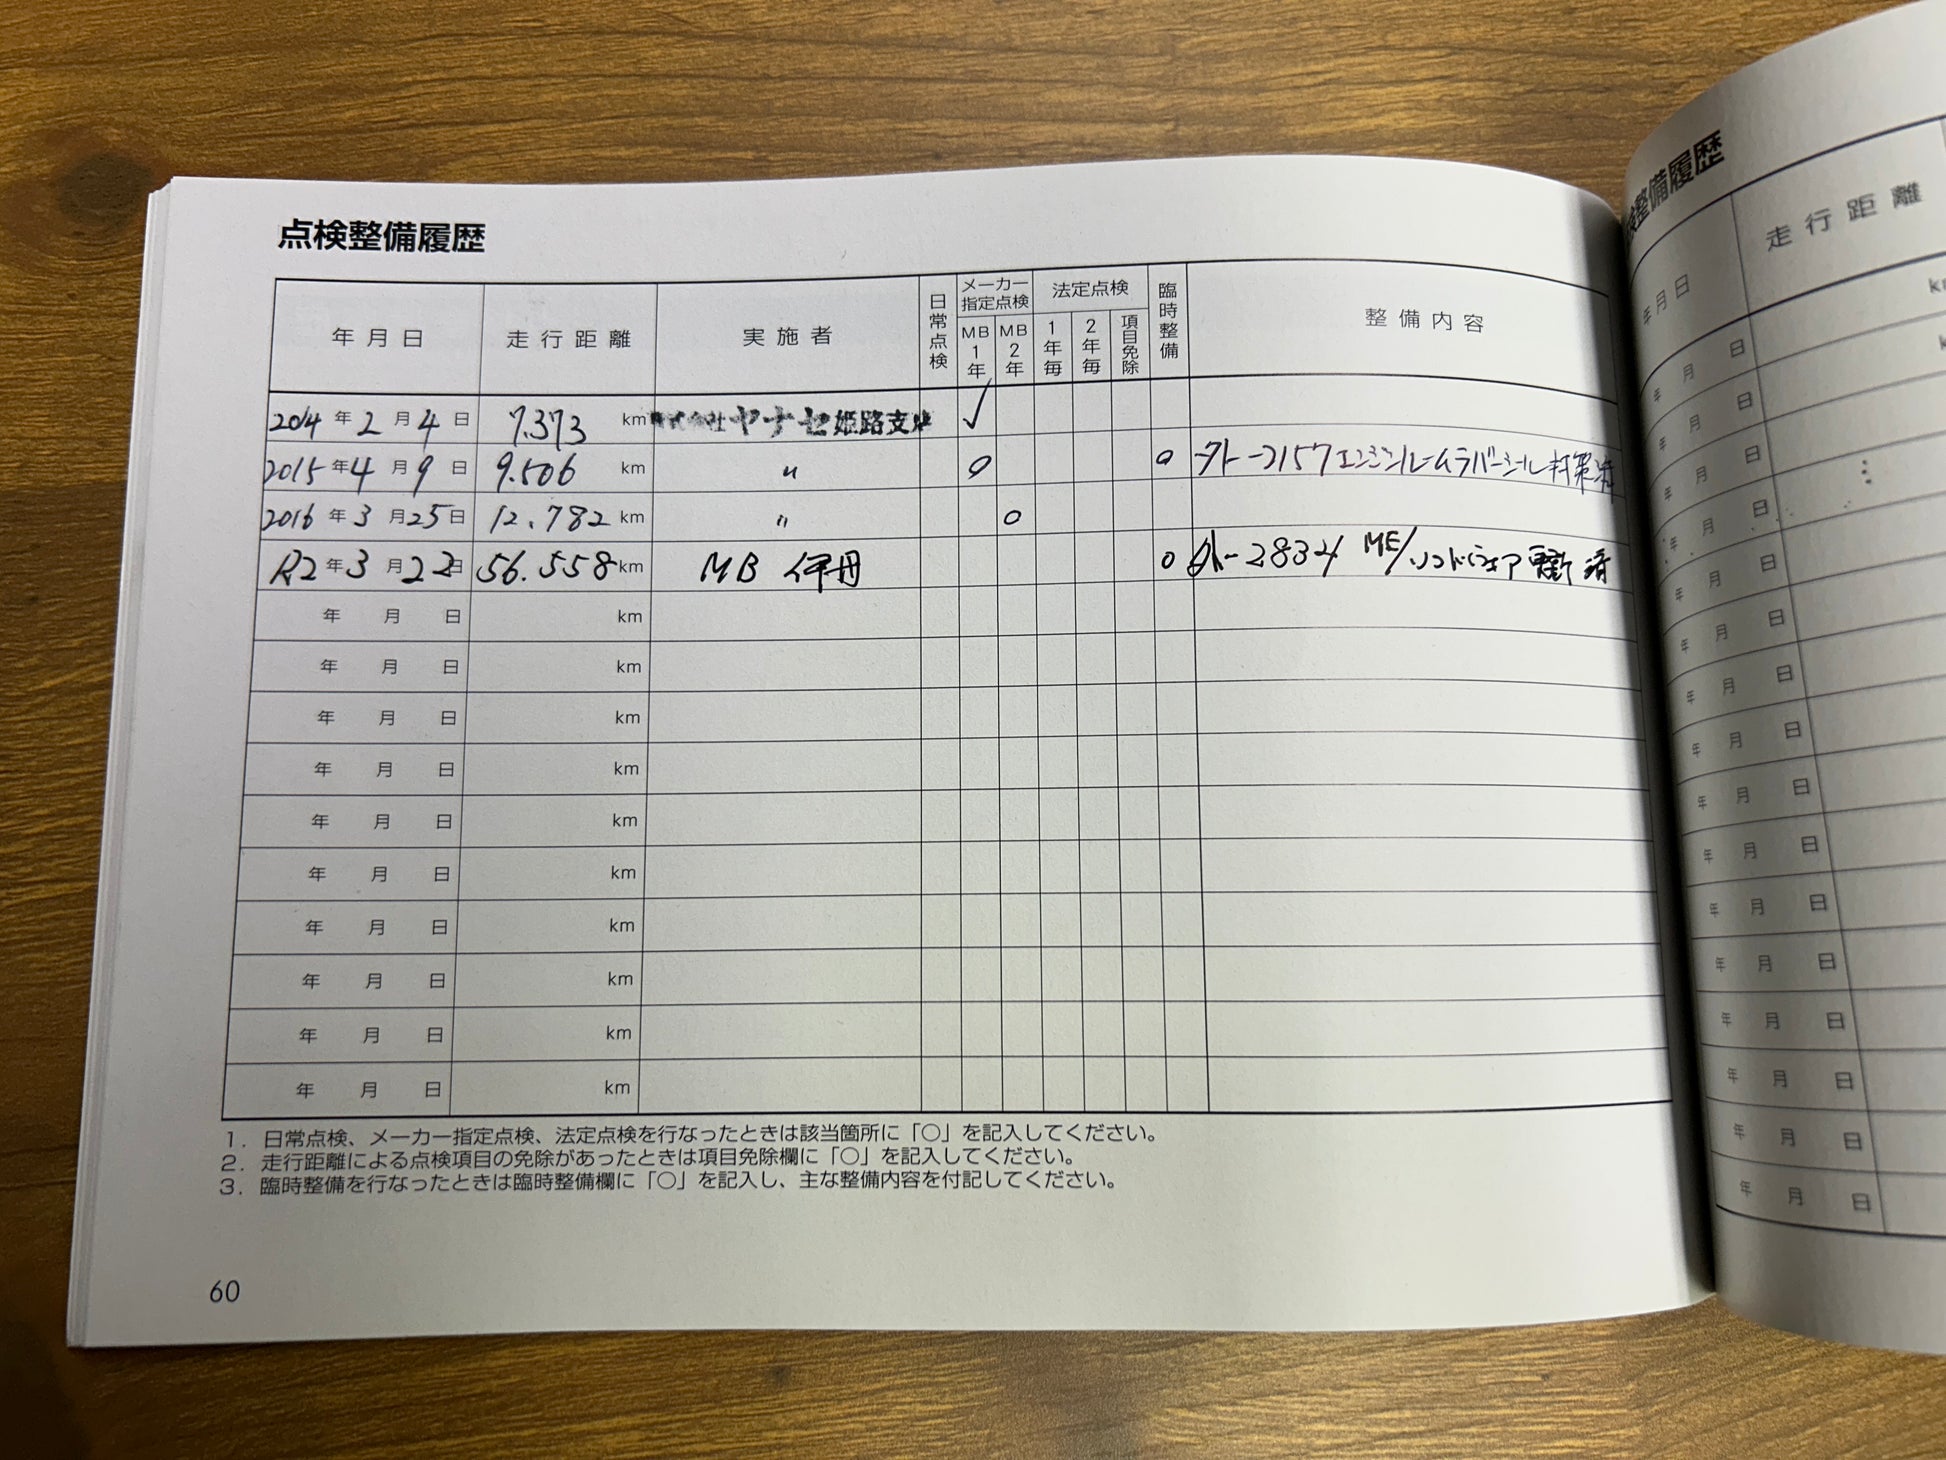 点検整備履歴
年月日 走行距離 実施者 日常点検 メーカー指定点検 MB1年 MB2年 法定点検 1年毎 2年毎 項目免除 臨時整備 整備内容
2014年2月4日 7.373km 株式会社ヤナセ姫路支店 ✓
2015年4月9日 9.506km 〃 ○ ○ 外-2157エンジンルームラバーシール対策済
2016年3月25日 12.782km 〃 ○
R2年3月22日 56.558km MB 伊丹 ○ 外-2834 ME/ソフトウェア更新 済
年 月 日 km
年 月 日 km
年 月 日 km
年 月 日 km
年 月 日 km
年 月 日 km
年 月 日 km
年 月 日 km
年 月 日 km
年 月 日 km
1. 日常点検、メーカー指定点検、法定点検を行なったときは該当箇所に「○」を記入してください。
2. 走行距離による点検項目の免除があったときは項目免除欄に「○」を記入してください。
3. 臨時整備を行なったときは臨時整備欄に「○」を記入し、主な整備内容を付記してください。
60
検整備履歴
年月日 走行距離
年 月 日
年 月 日
年 月 日
年 月 日
年 月 日
年 月 日
年 月 日
年 月 日
年 月 日
年 月 日
年 月 日
年 月 日
年 月 日
年 月 日
年 月 日